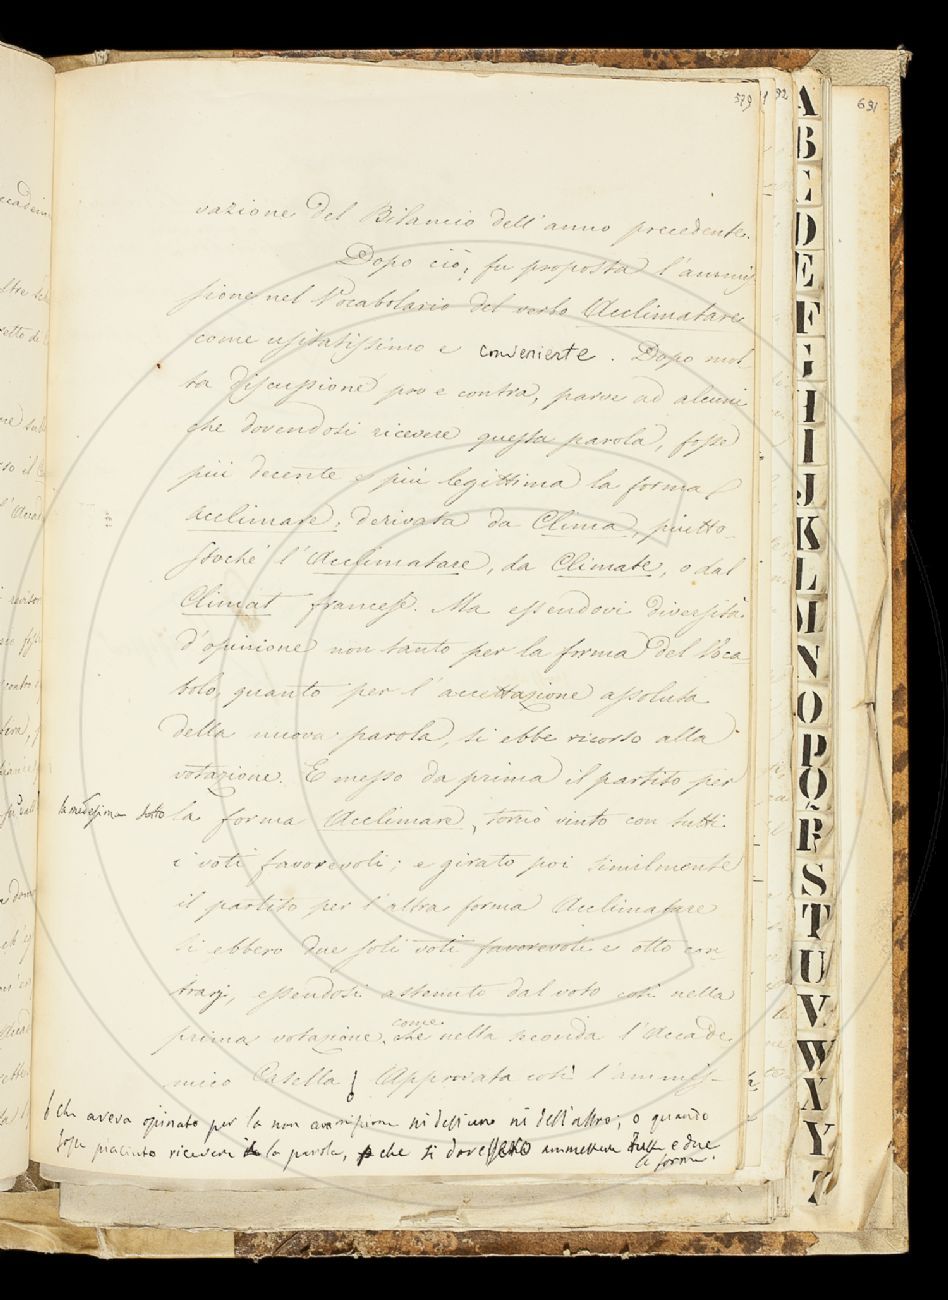 579
vazione del Bilancio dell'anno precedente.
Dopo ciò, fu proposta l'ammis
sione nel Vocabolario del verbo Acclimatare
come usitatissimo e conveniente. Dopo mol
ta discussione pro e contra, parve ad alcuni
che dovendosi ricevere questa parola, fosse
più decente e più legittima la forma
Acclimare, derivata da Clima, piutto-
stochè l'Acclimatare, da Climate, o dal
Climat francese. Ma essendovi diversità
d'opinione non tanto per la forma del Voca
bolo, quanto per l'accettazione assoluta
della nuova parola, si ebbe ricorso alla
votazione. E messo da prima il partito per
la medesima sotto la forma Acclimare, tornò vinto con tutti
i voti favorevoli; e girato poi similmente
il partito per l'altra forma Acclimatare
si ebbero due soli voti favorevoli e otto con
trarj, essendosi astenuto dal voto così nella
come
prima votazione che nella seconda l'Accade
mico Casella Approvata così l'ammis-
che aveva opinato per la non ammissione nè dell'uno nè dell'altro; o quando
fosse piaciuto ricevere la parola, che si dovessero ammettere tutte e due
le forme.
692
691
A
B
C
D
E
F
G
H
I
J
K
L
M
N
O
P
Q
R
S
T
U
V
W
X
Y
Z